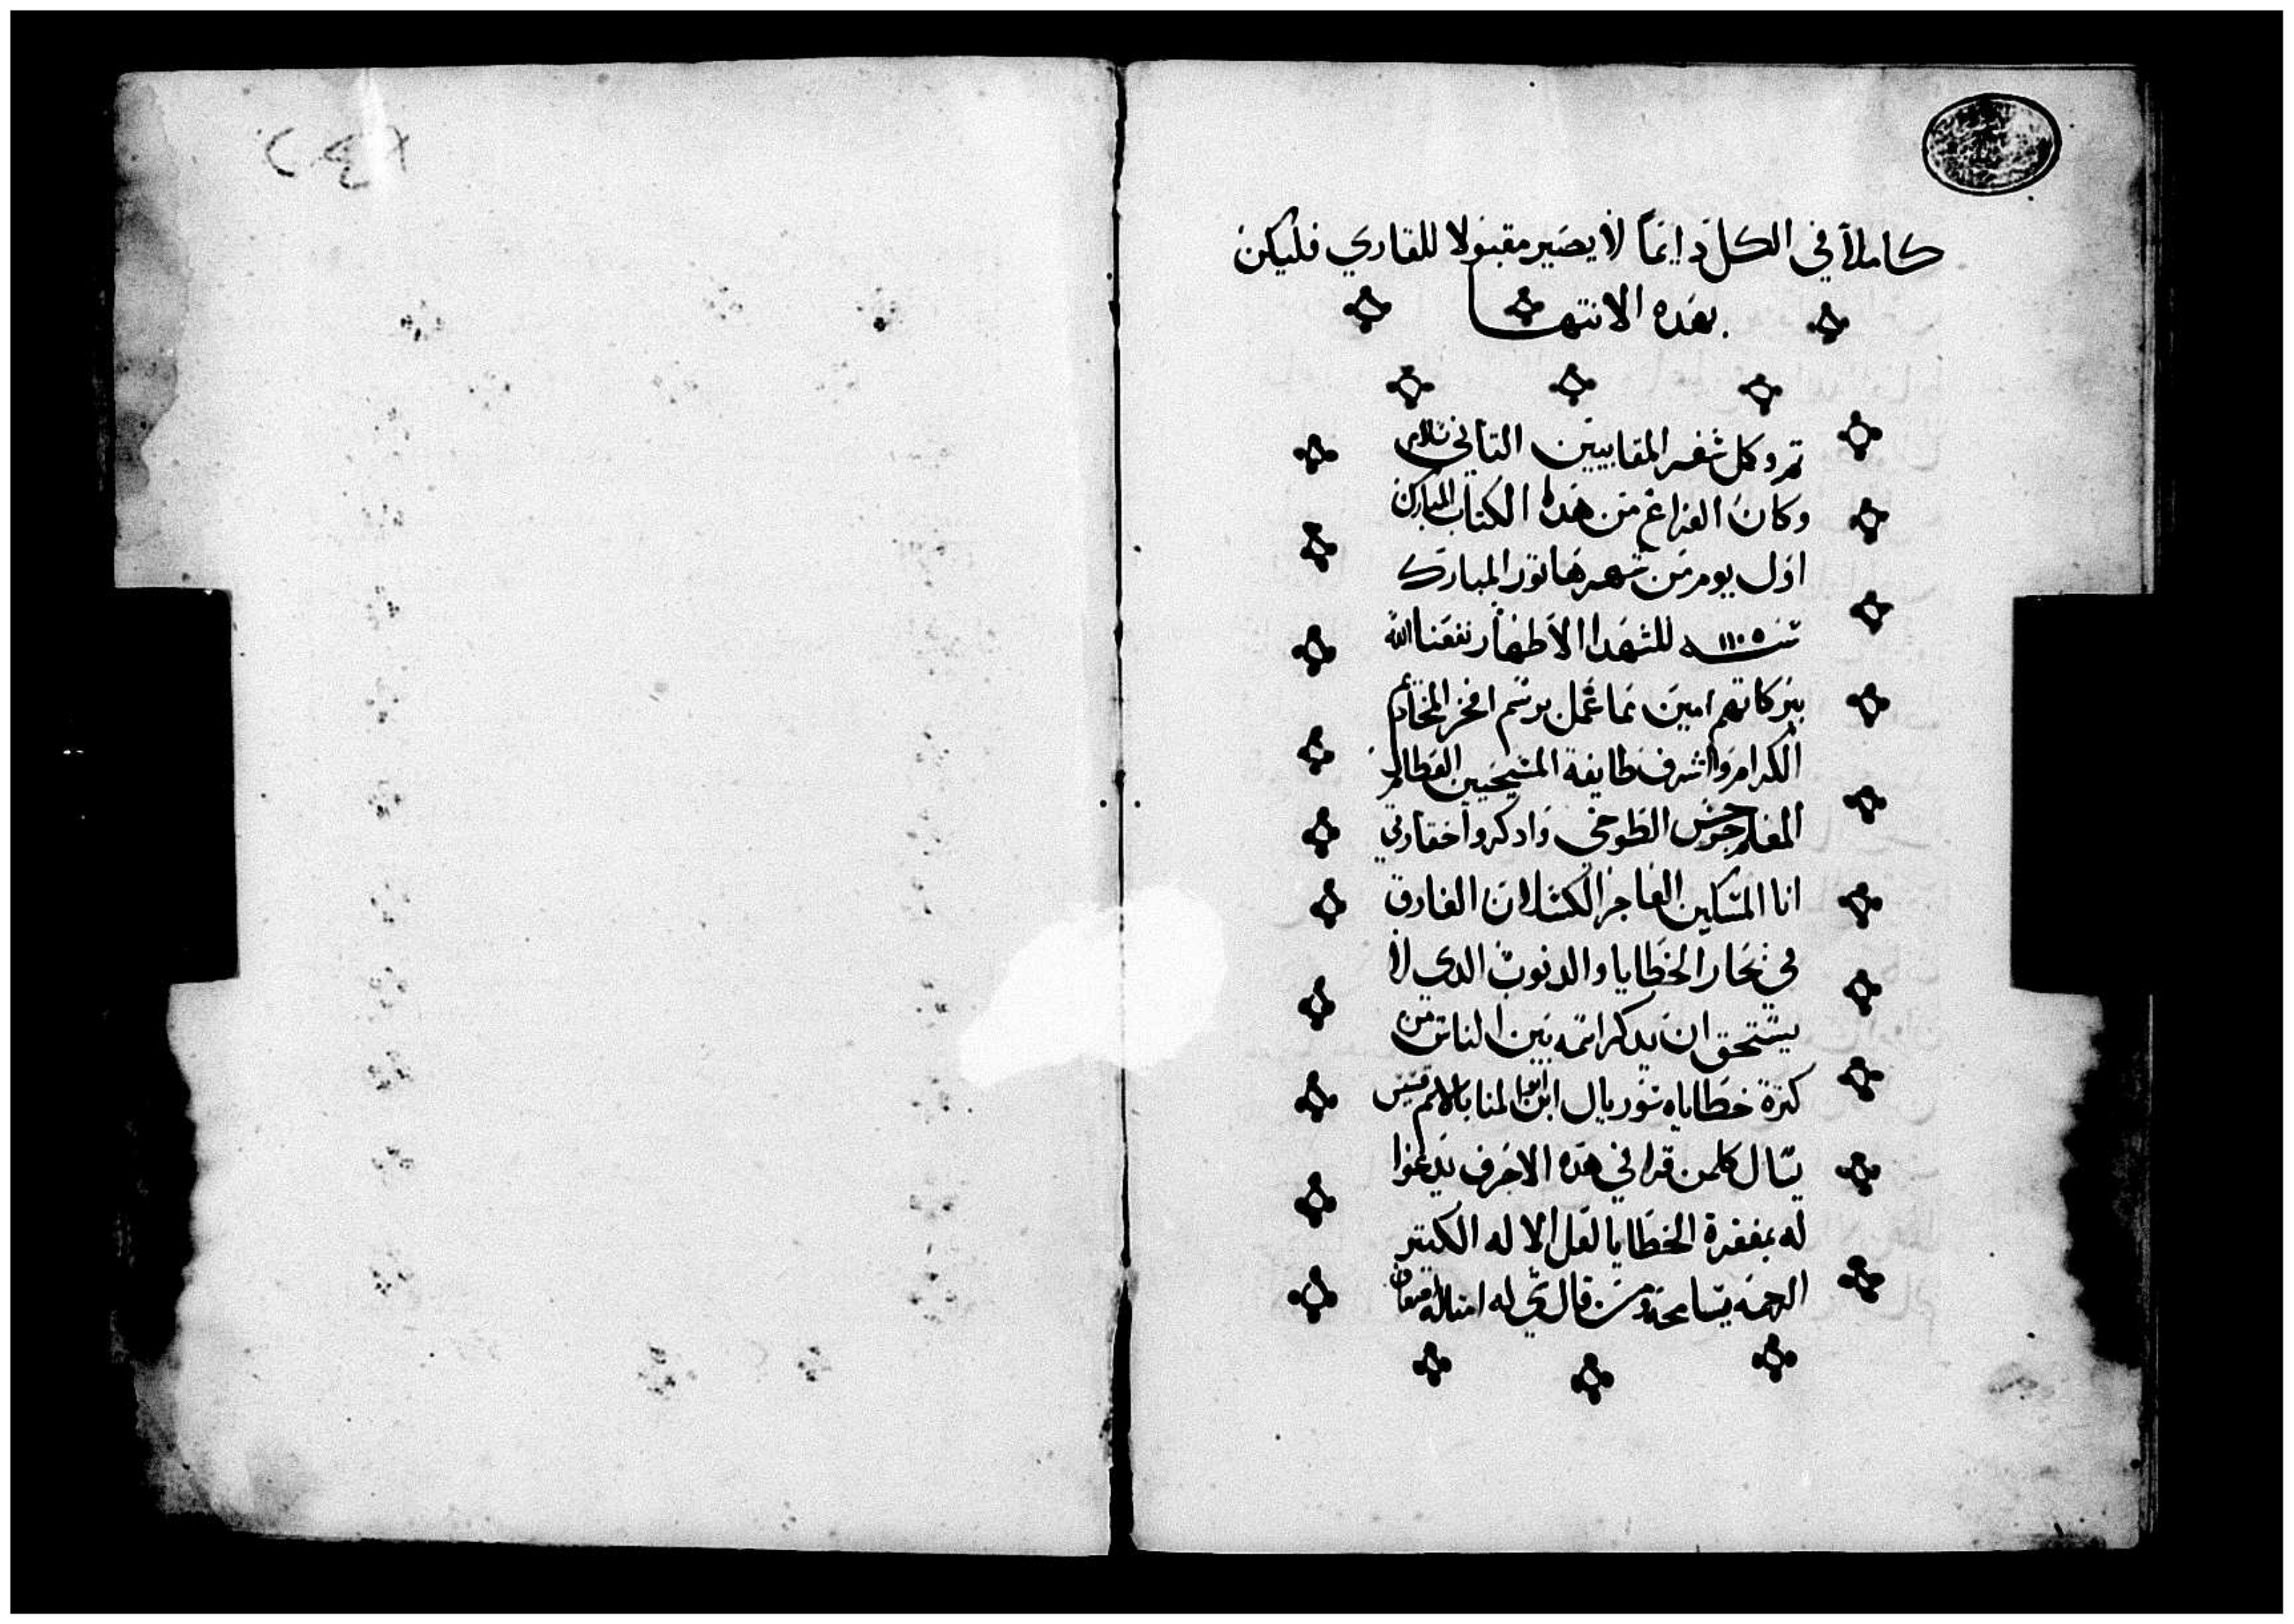 كاملاً في الكل دايمًا لا يصير مقبولا للقاري فليكن
بهده الانتها
تم وكمل سفر المقابيين التاني بسلام
وكان الفراغ من هده الكتاب المبارك
اول يوم من شهر هاتور المبارك
سنة ١١٠٥ للشهدا الاطهار نفعنا الله
ببركاتهم امين مما عمل برسم افخر المخاديم
الكرام واشرف طايفة المسيحيين
المعلم جرجس الطوخي وادكروا حقارتي
انا المسكين العاجز الكسلان الغارق
في بحار الخطايا والدنوب الدي لا
يستحق ان يدكر اسمه بين الناس من
كترة خطاياه ابن ابو المنا بالاسم قسيس
يسال كلمن قرا في هده الاحرف يدعوا
له بمغفرة الخطايا لعل الاله الكتير
الرحمه يسامحه ومن قال شي له امتاله